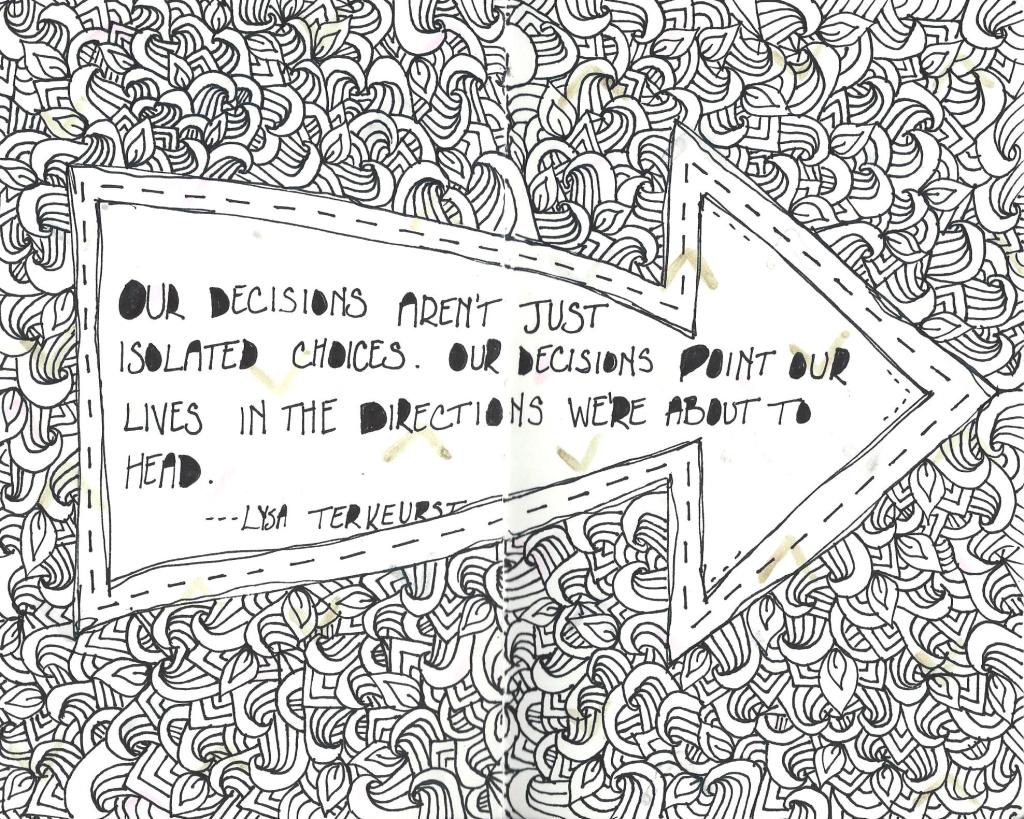 OUR DECISIONS AREN'T JUST
ISOLATED CHOICES. OUR DECISIONS POINT OUR
LIVES IN THE DIRECTIONS WE'RE ABOUT TO
HEAD.
---LYSA TERKEURST